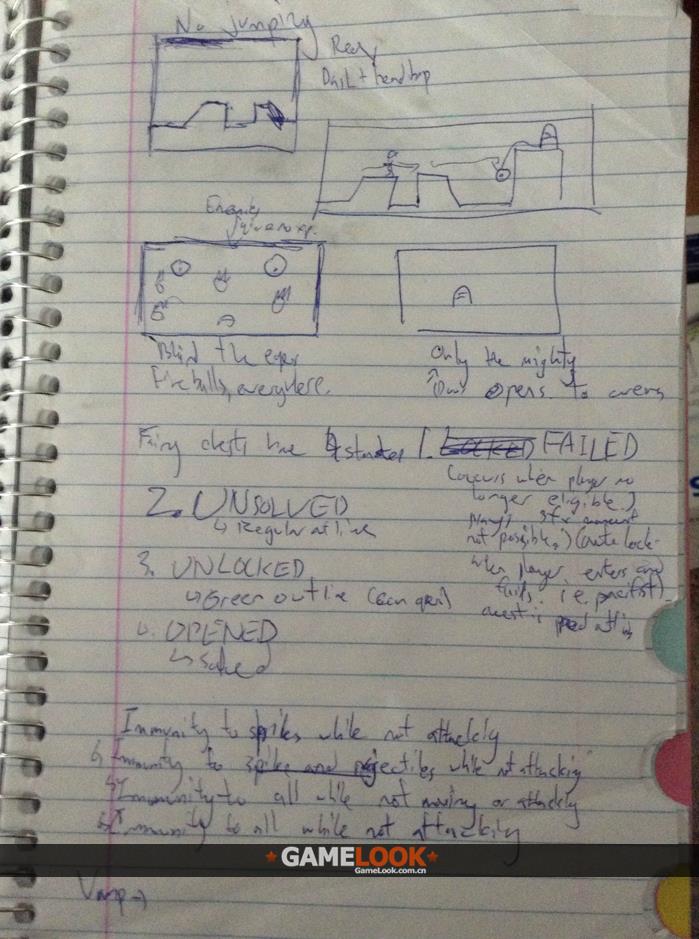 No Jumping
Ready
Dash + headbop
Enemies
give no xp.
Blind the eyes
Fireballs, everywhere.
Only the mighty
opens to
Fairy chests have 4 states 1. LOCKED FAILED
(occurs when player no
longer eligible.)
2. UNSOLVED
↳ Regular outline
not possible,
when player enters and
fails. i.e. pacifist)
chest is
3. UNLOCKED
↳ Green outline (can open)
OPENED
↳ Solved
Immunity to spikes while not attacking
↳ Immunity to spike and projectiles while not attacking
↳ Immunity to all while not moving or attacking
↳ Immunity to all while not attacking
GAMELOOK
GameLook.com.cn
Vamp →